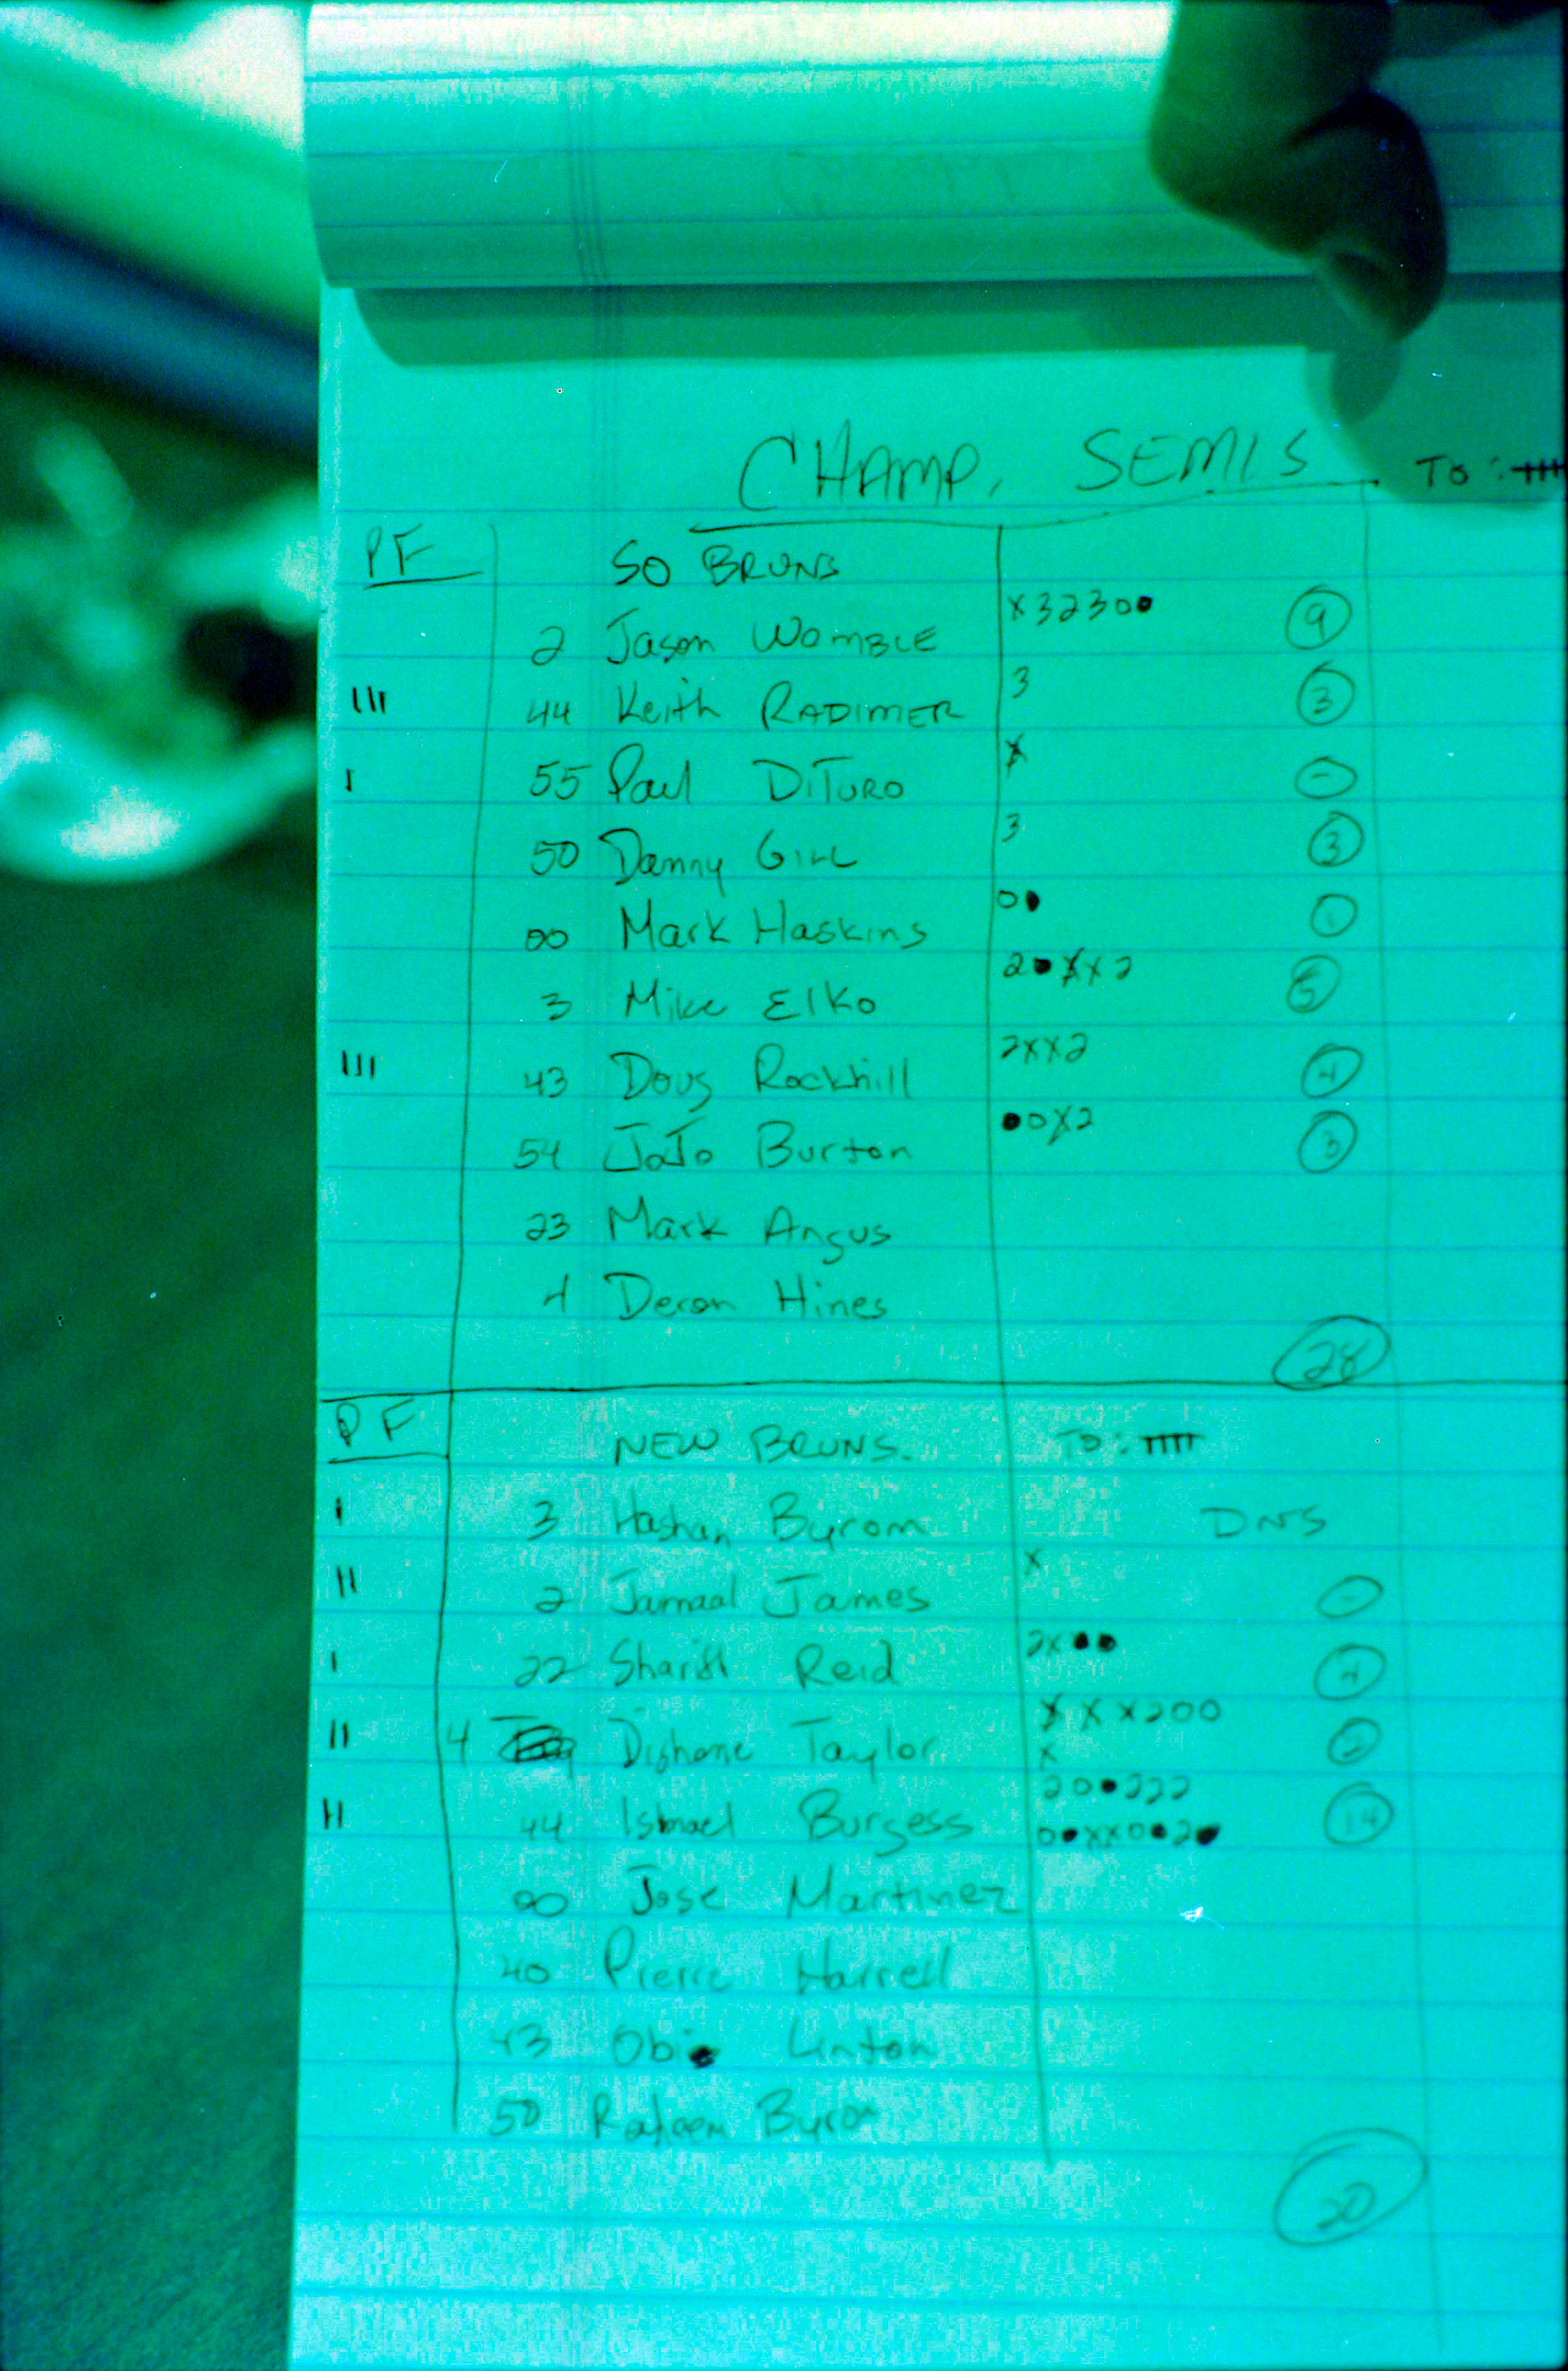 CHAMP. SEMIS TO:
PF SO BRUNS
2 Jason WOMBLE x32300 9
III 44 Keith RADIMER 3 3
I 55 Paul DiTURO x -
50 Danny GILL 3 3
00 Mark Haskins 00 1
3 Mike Elko 20xx2 5
III 43 Doug Rockhill 2xx2 4
54 JoJo Burton 00x2 3
23 Mark Angus
4 Deron Hines
28
PF NEW BRUNS. TO: IIIII
I 3 Hashan Byrom DNS
II 2 Jamaal James x -
I 22 Reid 2x00 4
II 4 Dishone Taylor xxx200 x 2
II 44 Ismael Burgess 200222 00xx0020 14
00 Jose Martinez
40 Pierre Harrell
43 Obie Linton
50 Byrom
20